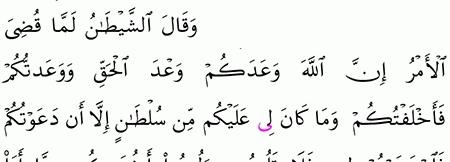 وَقَالَ ٱلشَّيْطَٰنُ لَمَّا قُضِىَ
ٱلْأَمْرُ إِنَّ ٱللَّهَ وَعَدَكُمْ وَعْدَ ٱلْحَقِّ وَوَعَدتُّكُمْ
فَأَخْلَفْتُكُمْ وَمَا كَانَ لِى عَلَيْكُم مِّن سُلْطَٰنٍ إِلَّآ أَن دَعَوْتُكُمْ